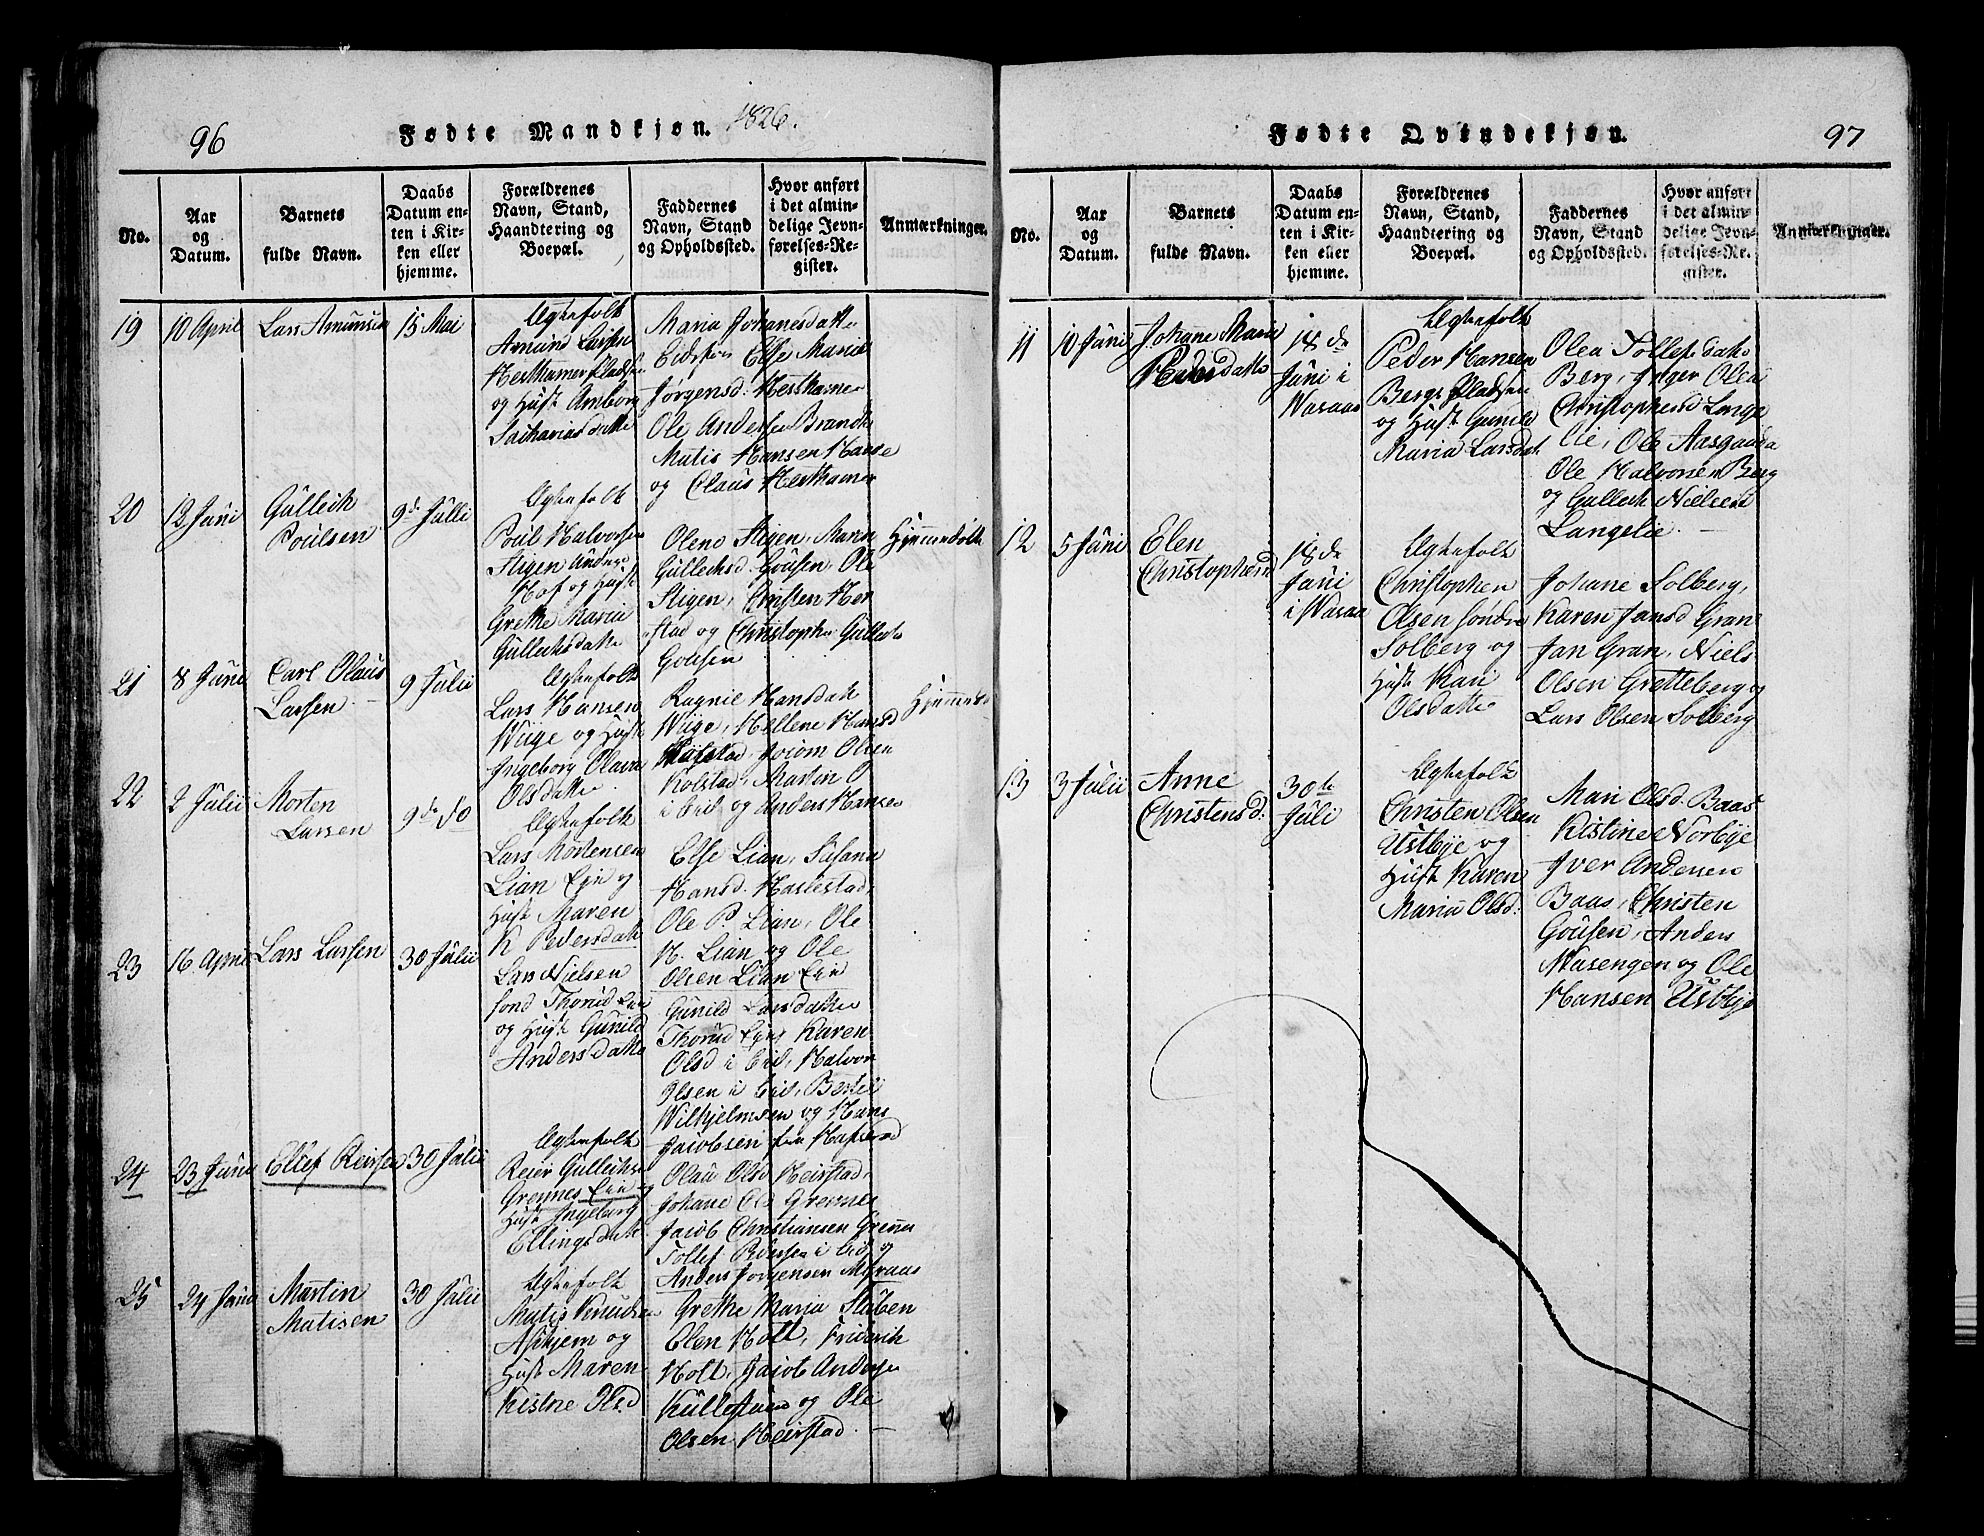 96
Fødte Mandkjøn. 1826.
No.
Aar
og
Datum.
Barnets
fulde Navn.
Daabs
Datum en-
ten i Kir-
ken eller
hjemme.
Forældrenes
Navn, Stand,
Haandtering og
Boepæl.
Faddernes
Navn, Stand
og Opholdssted.
Hvor anført
i det almin-
delige Jevn-
førelses-Re-
gister.
Anmærkninger.
19
10 April
Lars Amunsen
15 Mai
Ægtefolk
Amund Larsen
Hesthamer Pladsen
og Hust Amborg
Sachariasdatte
Maria Johanesdatte
Eidsfos Else Marie
Jørgensd. Hesthamer
Ole Andersen Brandt
Matis Hansen Hanse
og Claus Hesthamer
20
12 Juni
Gulleck
Poulsen
9de Julli
Ægtefolk
Poul Halvorsen
Stigen
Hof og Hust
Grethe Maria
Gullecksdatte
Oleno Stigen, Maren
Gullecksd. Gousen, Ole
Stigen, Cristen Her
stad og Christopher Gullecks
Gousen
Hjemmedøbt
21
8 Juni
Carl Olaus
Larsen
9 Julii
Ægtefolk
Lars Hansen
Wiige og Hust
Ingeborg Olava
Olsdatte
Ragnil Hansdatte
Wiige, Hellene Hansd
Joiom Olsen
Kolstad, Martin O
i Eid og Anders Hansen
Hjemmed
22
2 Julii
Morten
Larsen
9de do
Ægtefolk
Lars Mortensen
Lian Eje og
Hust Maren
K Pedersdatte
Else Lian, Susana
Hansd. Haslestad,
Ole P. Lian, Ole
H. Lian og Ole
Olsen Lian Eje
23
16 April
Lars Larsen
30 Julii
Lars Nielsen
Thorud Eje
og Hust Gunild
Andersdatte
Gunild Larsdatte
Thorud Eje, Karen
Olsd i Eid, Halvor
Olsen i Eid, Bertel
Wilhjelmsen og Hans
Jacobsen fra
24
23 Juni
Ellef Reiersen
30 Julii
Ægtefolk
Reier Gulleckse
Grennes Eje og
Hust Ingeborg
Ellingsdatte
Olau Olsd Heirstad,
Johane Els Grennes
Jacob Christiansen Grennes
Tollef Reiersen i Eid og
Anders Jorgensen Møraas
25
24 Juni
Martin
Matisen
30 Julii
Ægtefolk
Matis Knudsen
Askjem og
Hust Maren
Kistne Olsd
Grethe Maria Støben
Elen Holt, Friderik
Holt, Jacob Anderse
og Ole
Olsen Heirstad.
Fødte Qvindekjøn.
97
No.
Aar
og
Datum.
Barnets
fulde Navn.
Daabs
Datum en-
ten i Kir-
ken eller
hjemme.
Forældrenes
Navn, Stand,
Haandtering og
Boepæl.
Faddernes
Navn, Stand
og Opholdssted.
Hvor anført
i det almin-
delige Jevn-
førelses-Re-
gister.
Anmærkninger.
11
10 Juni
Johane Maria
Pedersdatte
18de
Juni i
Wasaas
Ægtefolk
Peder Hansen
Bergs Pladsen
og Hust Gunild
Maria Larsdat
Olea Tollefsdatte
Berg, Inger Olea
Christophersd Lange
lie, Ole Aasgaada
Ole Halvorsen Berg
og Gulleck Nielsen
Langelie
12
5 Juni
Elen
Christophersd
18de
Juni
i Wasaa
Ægtefolk
Christophen
Olsen søndre
Solberg og
Hust Kari
Olsdatte
Johane Solberg,
Karen Jansd Gran
Jan Gran, Niels
Olsen Gretteberg og
Lars Olsen Solberg
13
3 Julii
Anne
Christensd:
30te
Juli
Ægtefolk
Christen Olsen
Ustbye og
Hust Karen
Maria Olsd:
Mari Olsd. Baas
Kistine Norbye
Iver Andersen
Baas, Christen
Gousen, Anders
Wasengen og Ole
Hansen Ustbye